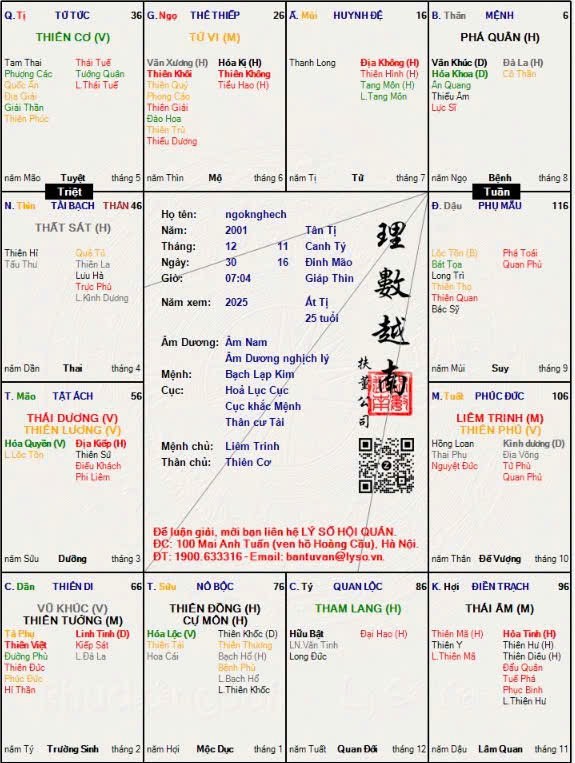 Q. Tị TỬ TỨC 36
THIÊN CƠ (V)
Tam Thai Thái Tuế
Phượng Các Tướng Quân
Quốc Ấn L.Thái Tuế
Địa Giải
Giải Thần
Thiên Phúc
năm Mão Tuyệt tháng 5
G. Ngọ THÊ THIẾP 26
TỬ VI (M)
Văn Xương (H) Hóa Kị (H)
Thiên Khôi Thiên Không
Thiên Quý Tiểu Hao (H)
Phong Cáo
Thiên Giải
Đào Hoa
Thiên Trù
Thiếu Dương
năm Thìn Mộ tháng 6
Ấ. Mùi HUYNH ĐỆ 16
Thanh Long Địa Không (H)
Thiên Hình (H)
Tang Môn (H)
L.Tang Môn
năm Tị Tử tháng 7
B. Thân MỆNH 6
PHÁ QUÂN (H)
Văn Khúc (D) Đà La (H)
Hóa Khoa (D) Cô Thần
Ân Quang
Thiếu Âm
Lực Sĩ
năm Ngọ Bệnh tháng 8
Triệt
Tuần
N. Thìn TÀI BẠCH THÂN 46
THẤT SÁT (H)
Thiên Hỉ Quả Tú
Tấu Thư Thiên La
Lưu Hà
Trực Phù
L.Kình Dương
năm Dần Thai tháng 4
Họ tên: ngoknghech
Năm: 2001 Tân Tị
Tháng: 12 11 Canh Tý
Ngày: 30 16 Đinh Mão
Giờ: 07:04 Giáp Thìn
Năm xem: 2025 Ất Tị
25 tuổi
Âm Dương: Âm Nam
Âm Dương nghịch lý
Mệnh: Bạch Lạp Kim
Cục: Hoả Lục Cục
Cục khắc Mệnh
Thân cư Tài
Mệnh chủ: Liêm Trinh
Thân chủ: Thiên Cơ
理數越南
扶董公司
Để luận giải, mời bạn liên hệ LÝ SỐ HỘI QUÁN.
ĐC: 100 Mai Anh Tuấn (ven hồ Hoàng Cầu), Hà Nội.
ĐT: 1900.633316 - Email: bantuvan@lyso.vn.
Đ. Dậu PHỤ MẪU 116
Lộc Tồn (B) Phá Toái
Bát Tọa Quan Phủ
Long Trì
Thiên Thọ
Thiên Quan
Bác Sỹ
năm Mùi Suy tháng 9
T. Mão TẬT ÁCH 56
THÁI DƯƠNG (V)
THIÊN LƯƠNG (V)
Hóa Quyền (V) Địa Kiếp (H)
L.Lộc Tồn Thiên Sứ
Điếu Khách
Phi Liêm
năm Sửu Dưỡng tháng 3
M. Tuất PHÚC ĐỨC 106
LIÊM TRINH (M)
THIÊN PHỦ (V)
Hồng Loan Kình dương (D)
Thai Phụ Địa Võng
Nguyệt Đức Tử Phù
Quan Phủ
năm Thân Đế Vượng tháng 10
C. Dần THIÊN DI 66
VŨ KHÚC (V)
THIÊN TƯỚNG (M)
Tả Phụ Linh Tinh (D)
Thiên Việt Kiếp Sát
Đường Phù L.Đà La
Thiên Đức
Phúc Đức
Hỉ Thần
năm Tý Trường Sinh tháng 2
T. Sửu NÔ BỘC 76
THIÊN ĐỒNG (H)
CỰ MÔN (H)
Hóa Lộc (V) Thiên Khốc (D)
Thiên Tài Thiên Thương
Hoa Cái Bạch Hổ (H)
Bệnh Phù
L.Bạch Hổ
L.Thiên Khốc
năm Hợi Mộc Dục tháng 1
C. Tý QUAN LỘC 86
THAM LANG (H)
Hữu Bật Đại Hao (H)
LN.Văn Tinh
Long Đức
năm Tuất Quan Đới tháng 12
K. Hợi ĐIỀN TRẠCH 96
THÁI ÂM (M)
Thiên Mã (H) Hỏa Tinh (H)
Thiên Y Thiên Hư (H)
L.Thiên Mã Thiên Diêu (H)
Đẩu Quân
Tuế Phá
Phục Binh
L.Thiên Hư
năm Dậu Lâm Quan tháng 11